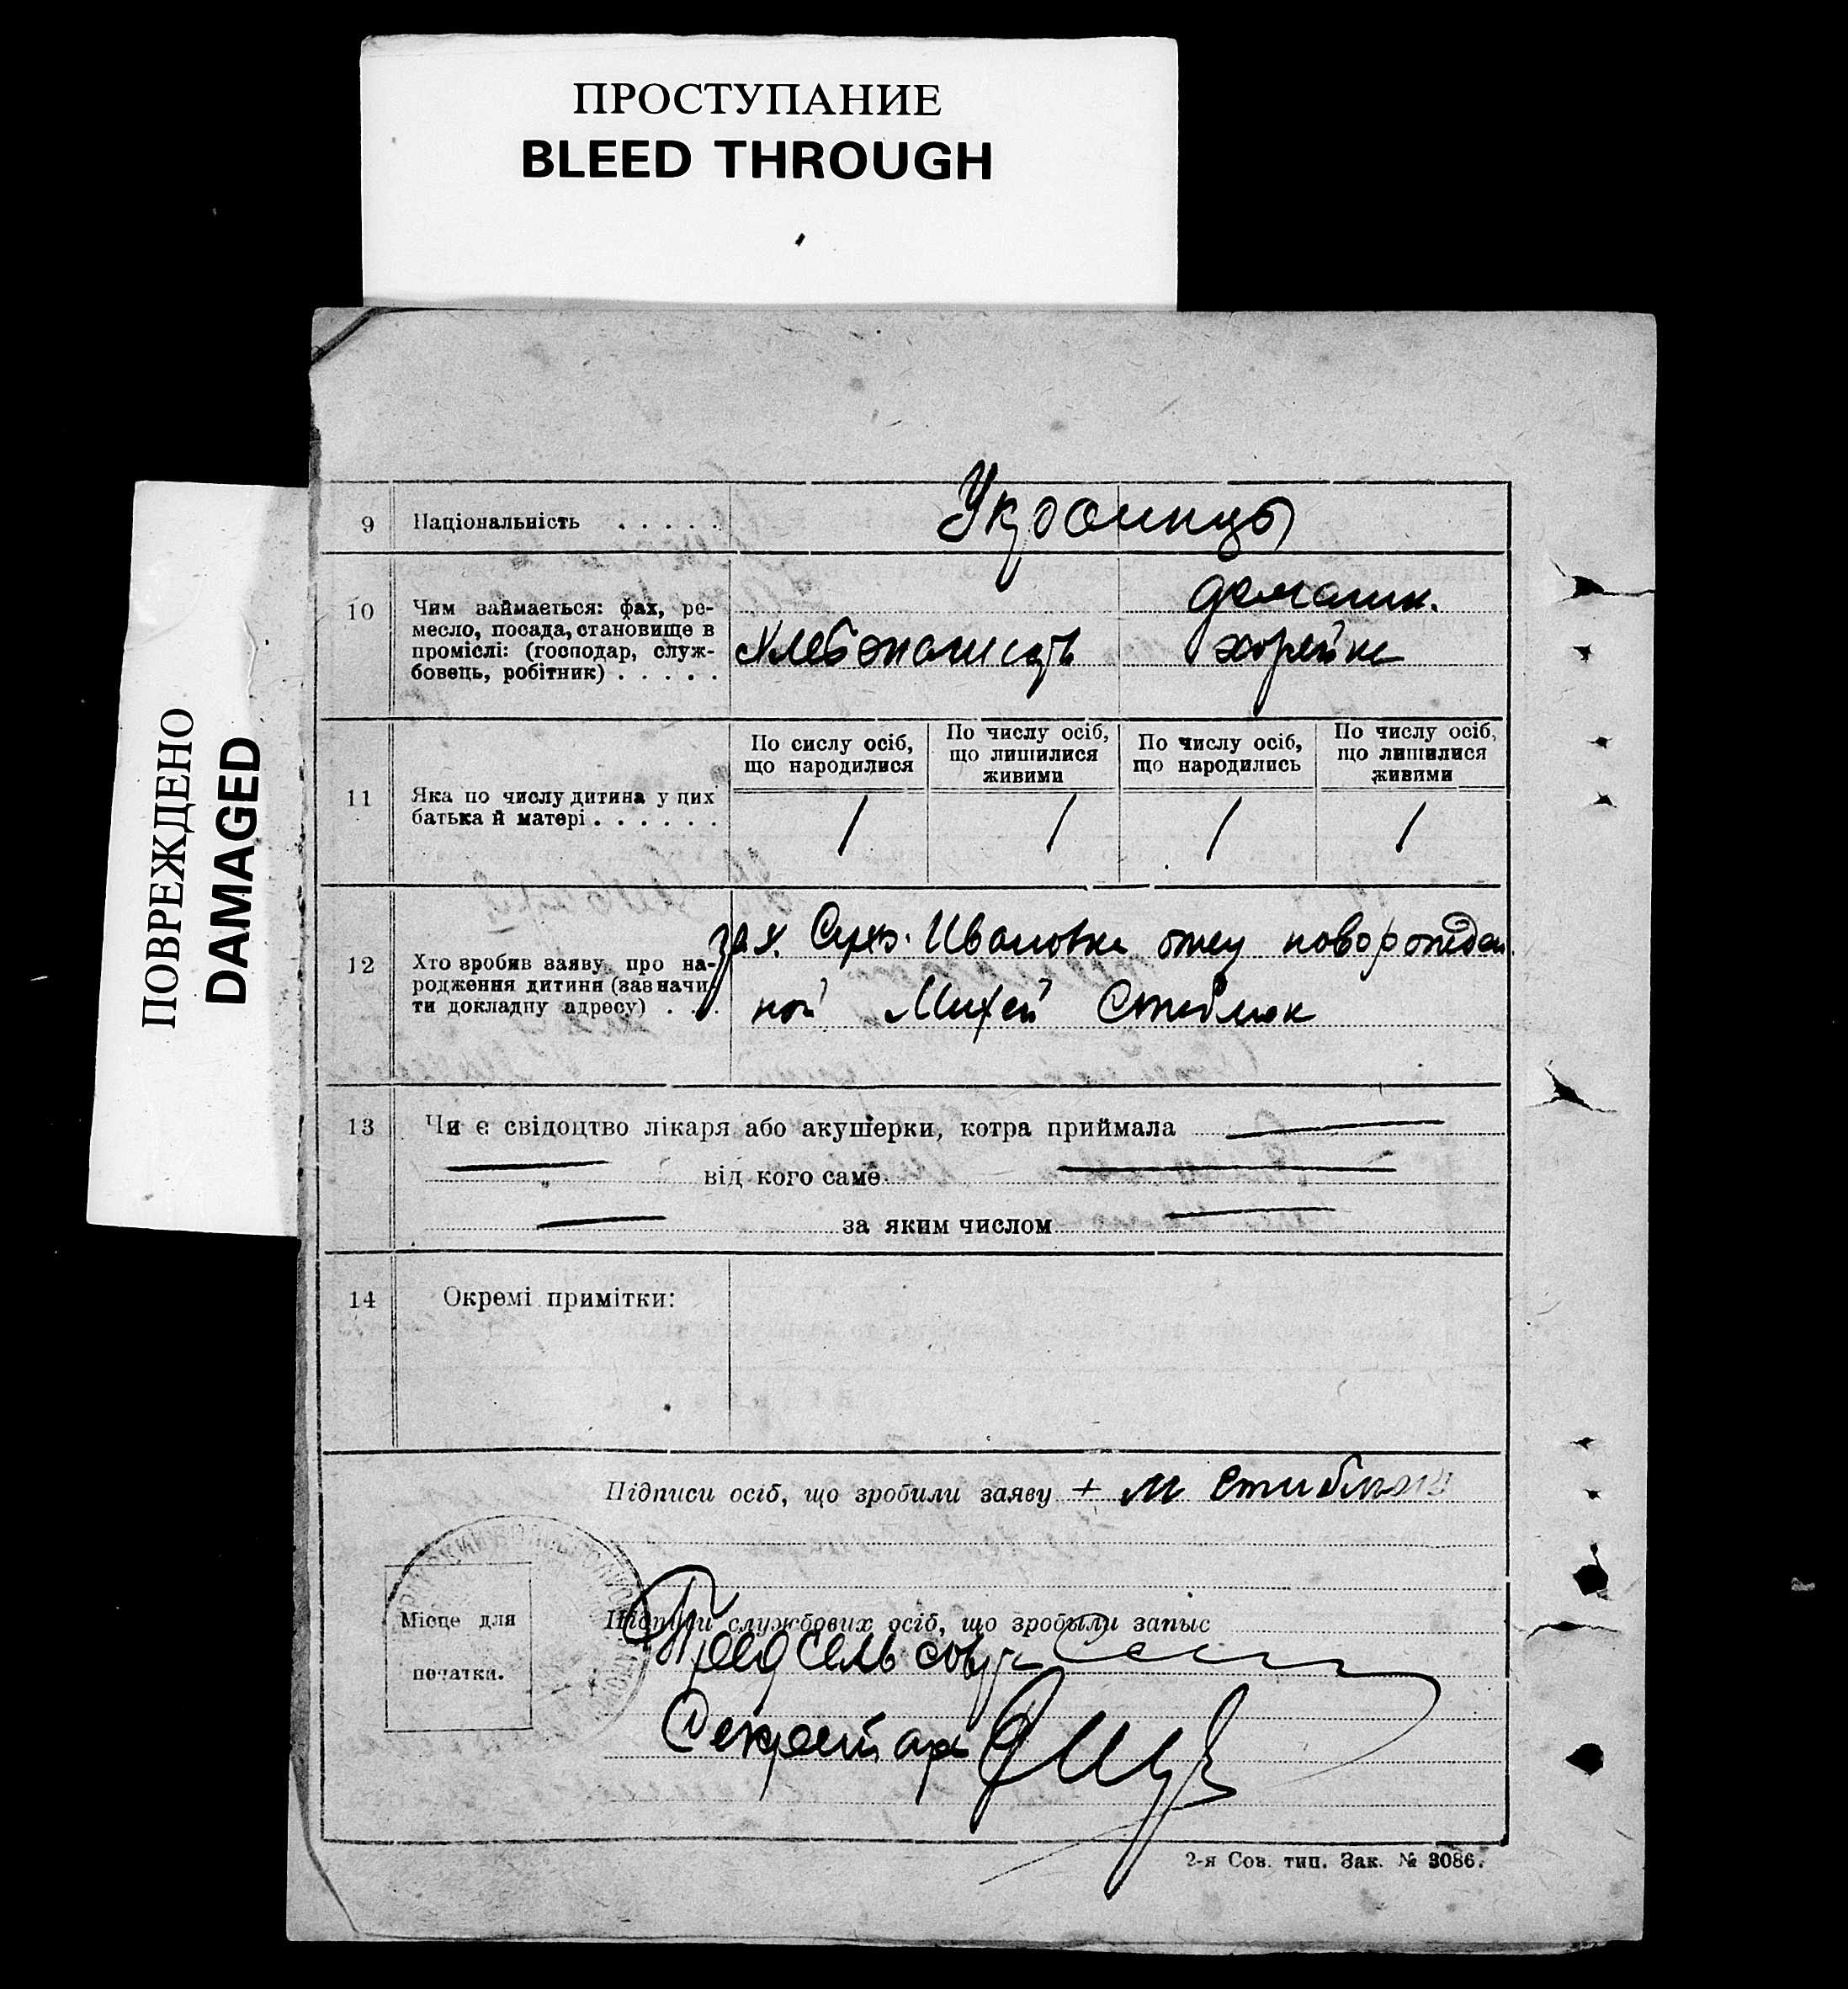 ПРОСТУПАНИЕ
BLEED THROUGH
ПОВРЕЖДЕНО
DAMAGED
9 Національність . . . . . Украинцы
10 Чим займається: фах, ре-
месло, посада, становище в
промислі: (господар, служ-
бовець, робітник) . . . . .
домашн.
хозяйка
По сислу осіб,
що народилися
По числу осіб,
що лишилися
живими
По числу осіб,
що народились
По числу осіб,
що лишилися
живими
11 Яка по числу дитина у цих
батька й матері . . . . . .
1 1 1 1
12 Хто зробив заяву про на-
родження дитини (зазначи-
ти докладну адресу) . . .
Ивановка отец новорожден
ной Михей Стеблюк
13 Чи є свідоцтво лікаря або акушерки, котра приймала
від кого саме
за яким числом
14 Окремі примітки:
Підписи осіб, що зробили заяву + М Стиблюк
Підписи службових осіб, що зробыли запыс
Пред сельсовета
Секретарь
Місце для
печатки.
2-я Сов. тип. Зак. № 3086.